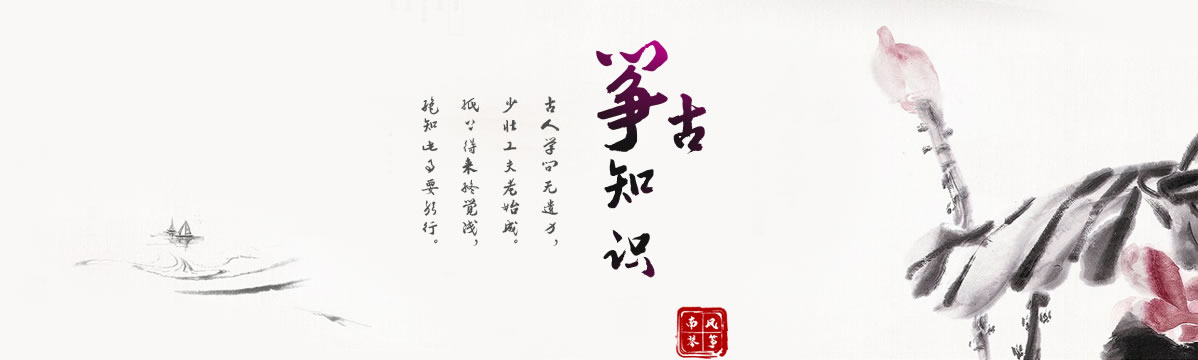 古筝知识
古人学问无遗力，
少壮工夫老始成。
纸上得来终觉浅，
绝知此事要躬行。
南风
琴筝